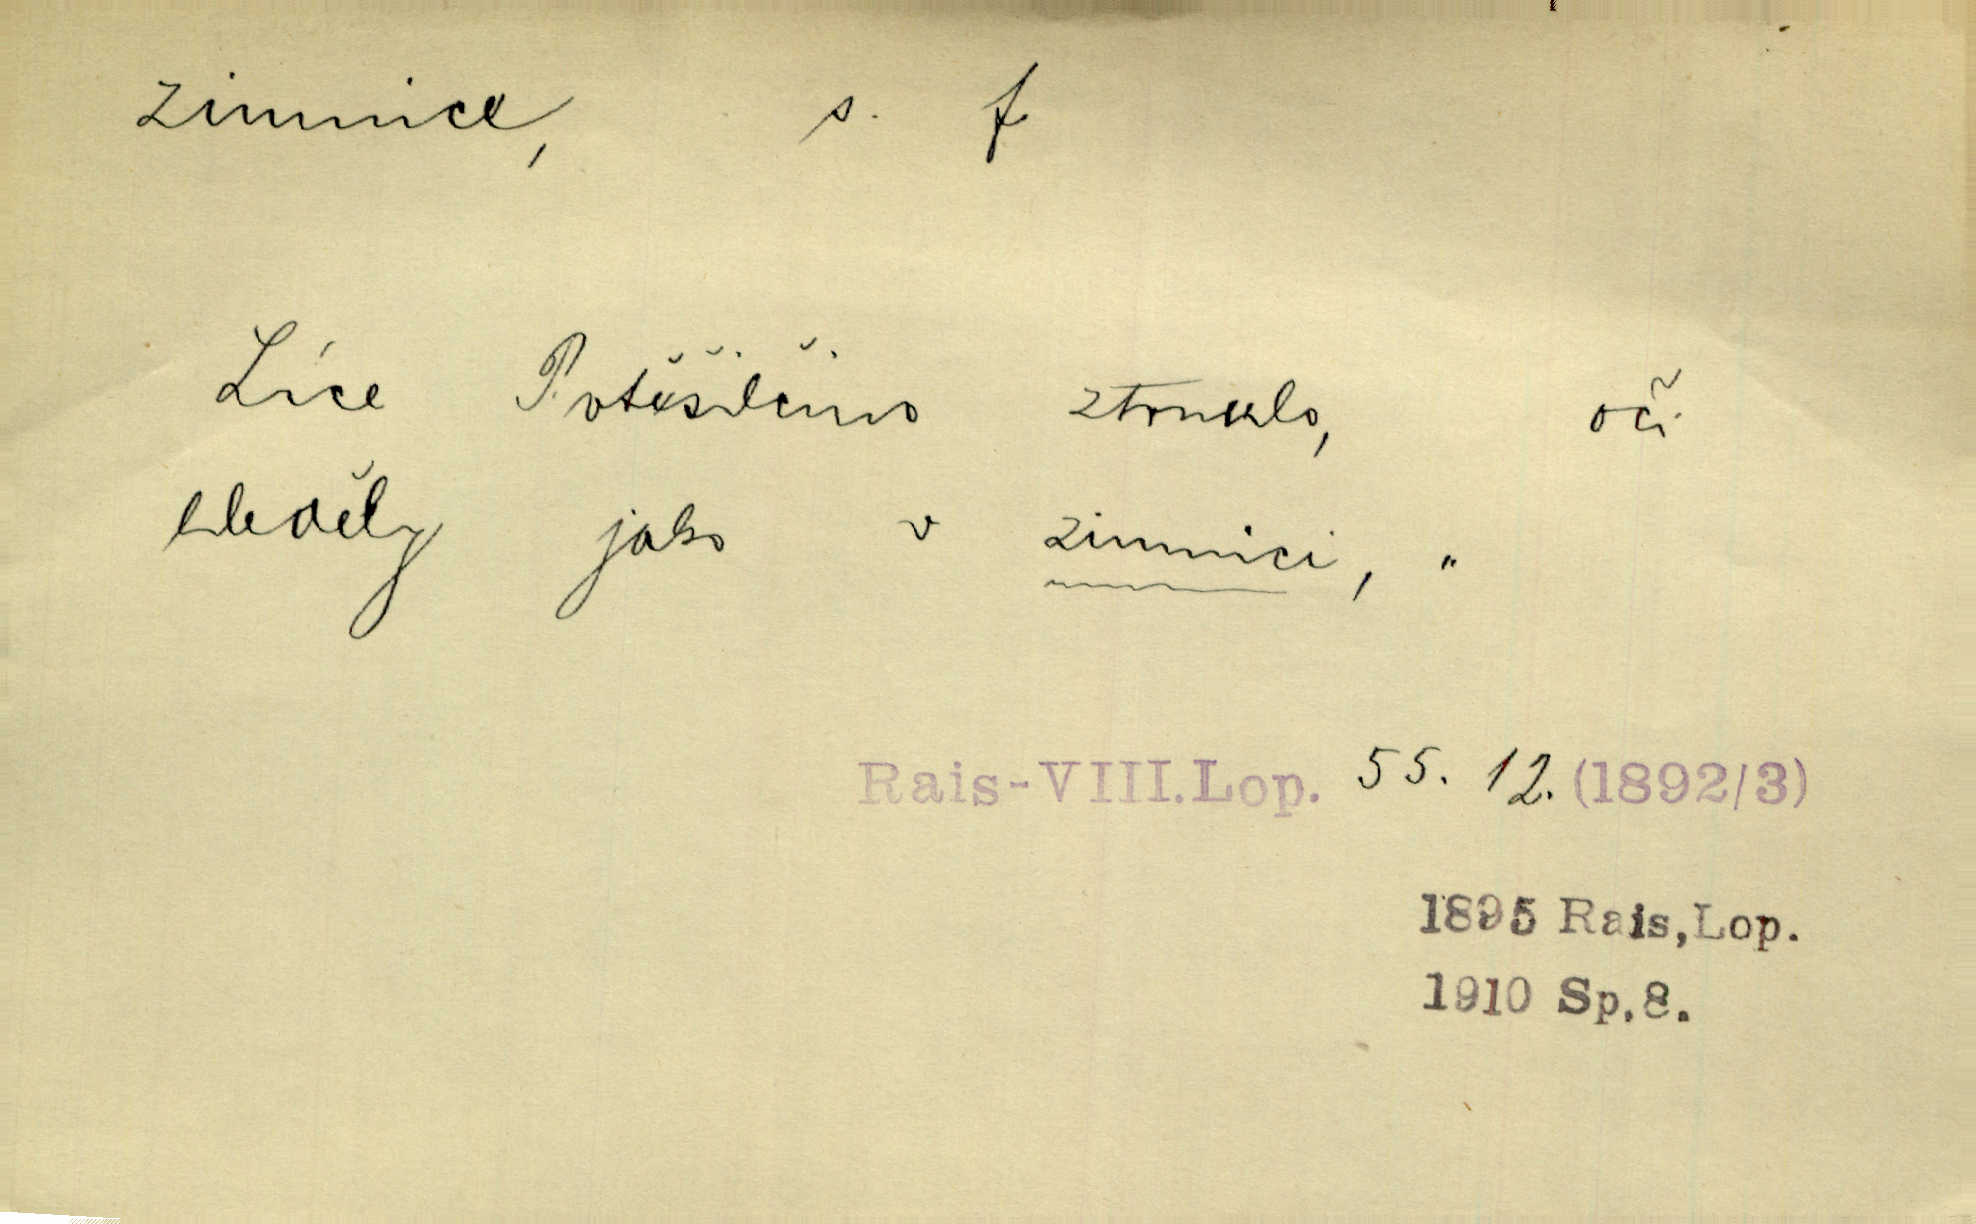 zimnice, s. f
Líce Potěšilčino ztrnulo, oči
hleděly jako v zimnici, "
Rais-VIII.Lop. 55. 12. (1892/3)
1895 Rais,Lop.
1910 Sp.8.